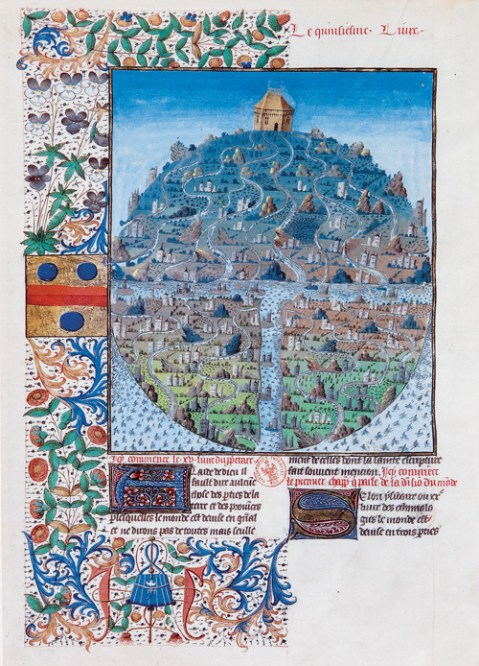 Le quinsiesme Livre.
Icy commence le xv livre du
A laide de dieu il
fault dire aulcune
chose des pties de la
terre et des provices
lesquelles le monde est devise en gnal
et ne dirons pas de toutes mais seule
ment de celles dont la sainte escripture
fait souvent mencion. Icy commece
le premier chap q parle de la divisio du mode
Selon ysidore ou xve
livre des ethimolo
gies le monde est
devise en trois pties